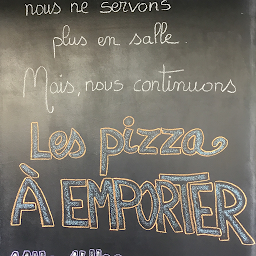 nous ne servons
plus en salle.
Mais, nous continuons
Les pizza
À EMPORTER